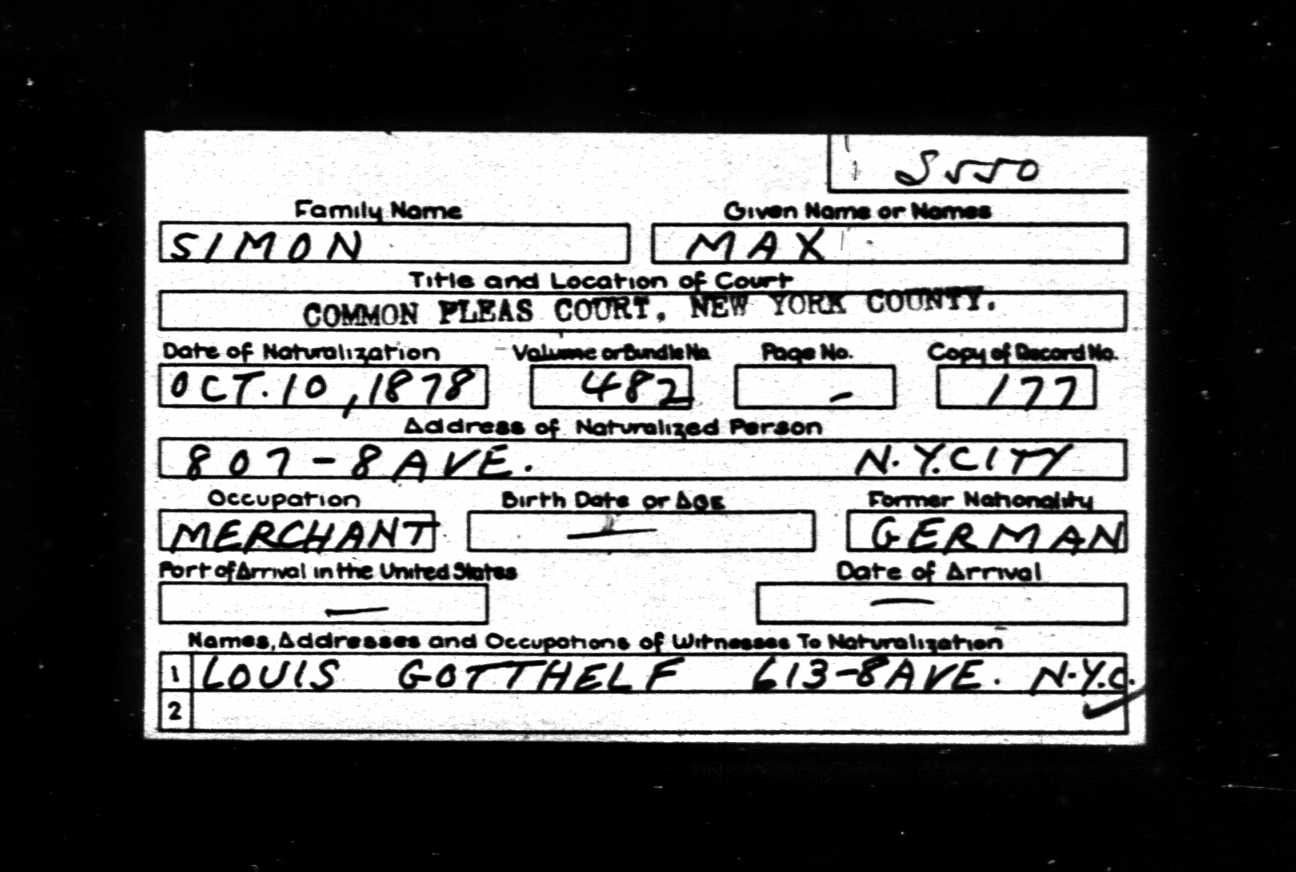 S550
Family Name Given Name or Names
SIMON MAX
Title and Location of Court
COMMON PLEAS COURT, NEW YORK COUNTY.
Date of Naturalization Volume or Bundle No. Page No. Copy of Record No.
OCT. 10, 1878 482 - 177
Address of Naturalized Person
807-8 AVE. N.Y.CITY
Occupation Birth Date or Age Former Nationality
MERCHANT — GERMAN
Port of Arrival in the United States Date of Arrival
— —
Names, Addresses and Occupations of Witnesses To Naturalization
1 LOUIS GOTTHELF 613-8 AVE. N.Y.C.
2